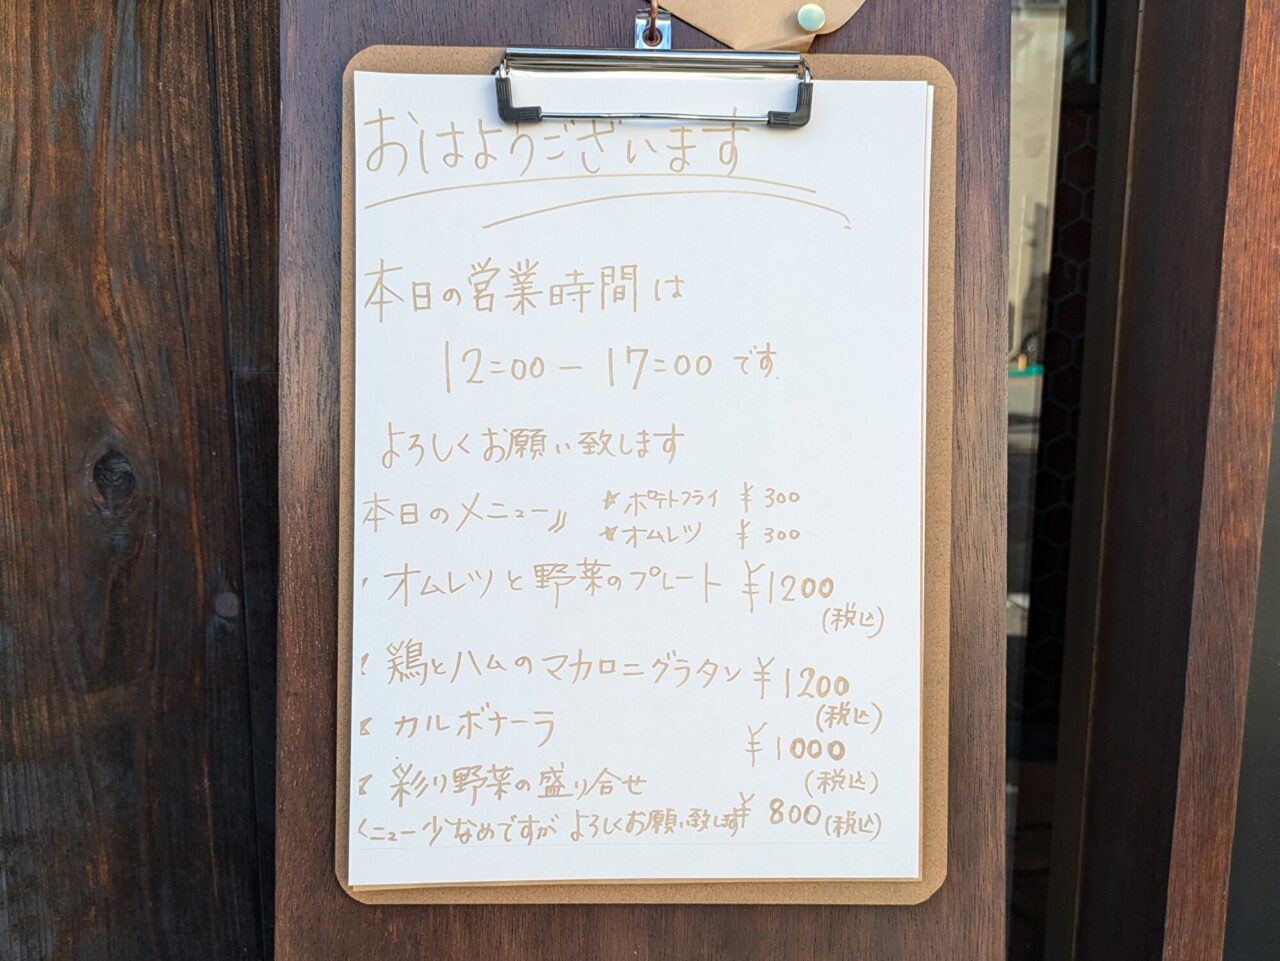 おはようございます
本日の営業時間は
12:00ー17:00です
よろしくお願い致します
本日のメニュー〃
*ポテトフライ ¥300
*オムレツ ¥300
オムレツと野菜のプレート ¥1200
(税込)
鶏とハムのマカロニグラタン ¥1200
(税込)
カルボナーラ
¥1000
(税込)
彩り野菜の盛り合せ
¥800(税込)
メニュー少なめですが よろしくお願い致します